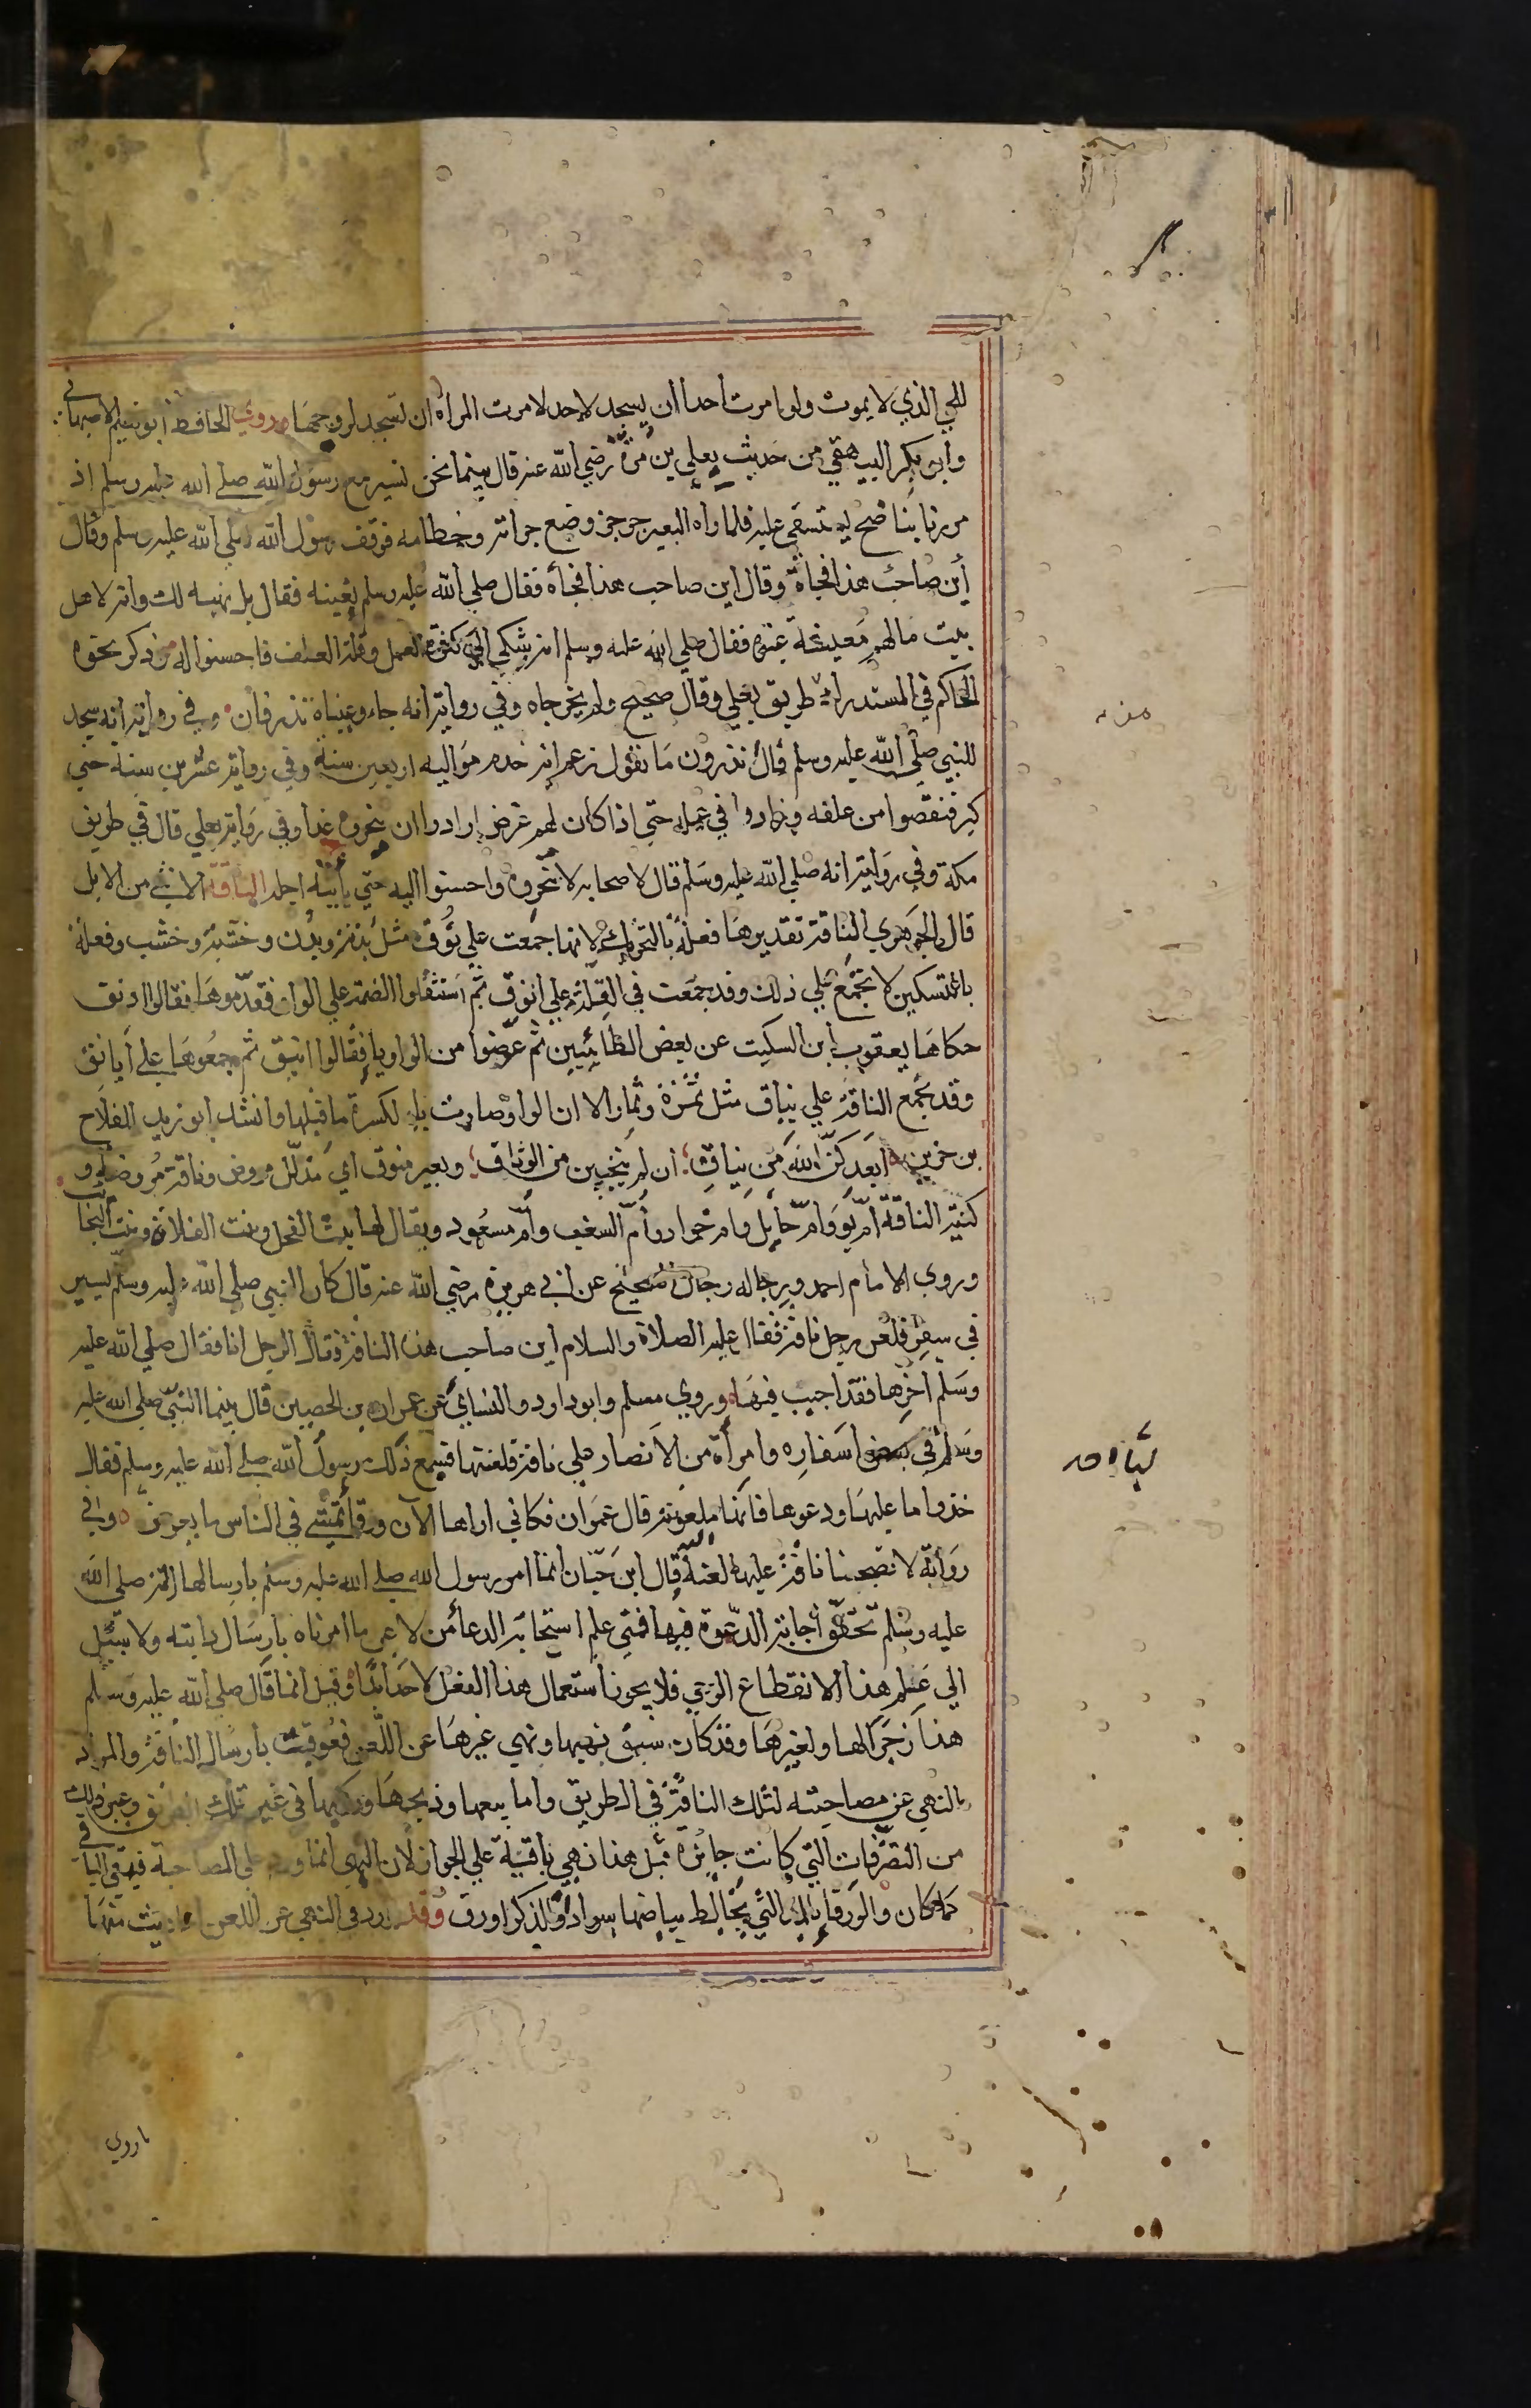 للحي الذي لا يموت ولو امرت احدا ان يسجد لاحد لامرت المراة ان تسجد لزوجها وروي الحافظ ابو نعيم الاصبهاني
وابو بكر البيهقي من حديث يعلي بن مرة رضي الله عنه قال بينما نحن نسير مع رسول الله صلي الله عليه وسلم اذ
مررنا بناضح يستقي عليه فلما راه البعير جرجر وضع جرانه وخطامه فوقف رسول الله صلي الله عليه وسلم وقال
أين صاحب هذا فجاة وقال اين صاحب هذا فجأه فقال صلي الله عليه وسلم بعينه فقال بل نهبه لك وانه لاهل
بيت ما لهم معيشة غيره فقال صلي الله عليه وسلم انه شكي الي كثرة العمل وقلة العلف فاحسنوا اليه وذكر نحوه
الحاكم في المستدرك من طريق يعلي وقال صحيح ولم يخرجاه وفي رواية انه جاء وعيناه تذرفان وفي رواية انه سجد
للنبي صلي الله عليه وسلم قال تدرون ما تقول زعم انه خدم مواليه اربعين سنة وفي رواية عشرين سنة حتي
كبر فنقصوا من علفه وزادوا في عمله حتي اذا كان لهم عرض ارادوا ان ينحروه غدا وفي رواية يعلي قال في طريق
مكة وفي رواية انه صلي الله عليه وسلم قال لاصحابه لا تنحروه واحسنوا اليه حتي يأتيه اجله الناقة الانثي من الابل
قال الجوهري الناقة تقديرها فعلة بالتحريك لانها جمعت علي نوق مثل بدنة وبدن وخشبة وخشب وفعلة
بالتسكين لا تجمع علي ذلك وقد جمعت في القلة علي انوق ثم استثقلوا الضمة علي الواو فقدموها فقالوا اونق
حكاها يعقوب ابن السكيت عن بعض الطائيين ثم عوضوا من الواو يا فقالوا اينق ثم جمعوها علي أيانق
وقد تجمع الناقة علي نياق مثل ثمرة وثمار الا ان الواو صارت ياء لكسرة ما قبلها وانشد ابو زيد للقلاح
بن حزن أبعدكن الله من نياق ان لم ينجين من الوثاق وبعير منوق اي مذلل مروض وناقة مروضة و
كنية الناقة أم بو وأم حايل وام حوار وأم السغب وأم مسعود ويقال لها بنت الفحل وبنت الفلاة وبنت النجايب
وروي الامام احمد ورجاله رجال الصحيح عن ابي هريرة رضي الله عنه قال كان النبي صلي الله عليه وسلم يسير
في سفر فلعن رجل ناقة فقال عليه الصلاة والسلام اين صاحب هذه الناقة فقال الرجل انا فقال صلي الله عليه
وسلم أخرها فقد اجيب فيها وروي مسلم وابو داود والنسائي عن عمران بن الحصين قال بينما النبي صلي الله عليه
وسلم في بعض اسفاره وامرأة من الانصار علي ناقة فلعنتها فسمع ذلك رسول الله صلي الله عليه وسلم فقال
خذوا ما عليها ودعوها فانها ملعونة قال عمران فكاني اراها الآن ورقأ تمشي في الناس ما يعرض وفي
رواية لا تصحبنا ناقة عليها لعنة قال ابن حبان انما امر رسول الله صلي الله عليه وسلم بارسالها لانه صلي الله
عليه وسلم تحقق أجابة الدعوة فيها فمتي علم استجابة الدعا من لاعن ما امرناه بارسال دابته ولا سبيل
الي علم هذا لانقطاع الوحي فلا يجوز استعمال هذا الفعل لاحد ابدا وقيل انما قال صلي الله عليه وسلم
هذا زجرا لها ولغيرها وقد كان سبق نهيها ونهي غيرها عن اللعن فعوقبت بارسال الناقة والمراد
بالنهي عن مصاحبته لتلك الناقة في الطريق واما بيعها وذبحها وركوبها في غير تلك الطريق وغير ذلك
من التصرفات التي كانت جايزة قبل هذا فهي باقية علي الجواز لان النهي انما ورد علي المصاحبة فبقي الباقي
كما كان والورقا بالمد التي يخالط بياضها سواد والذكر اورق وقد ورد في النهي عن اللعن احاديث منها
ما روي